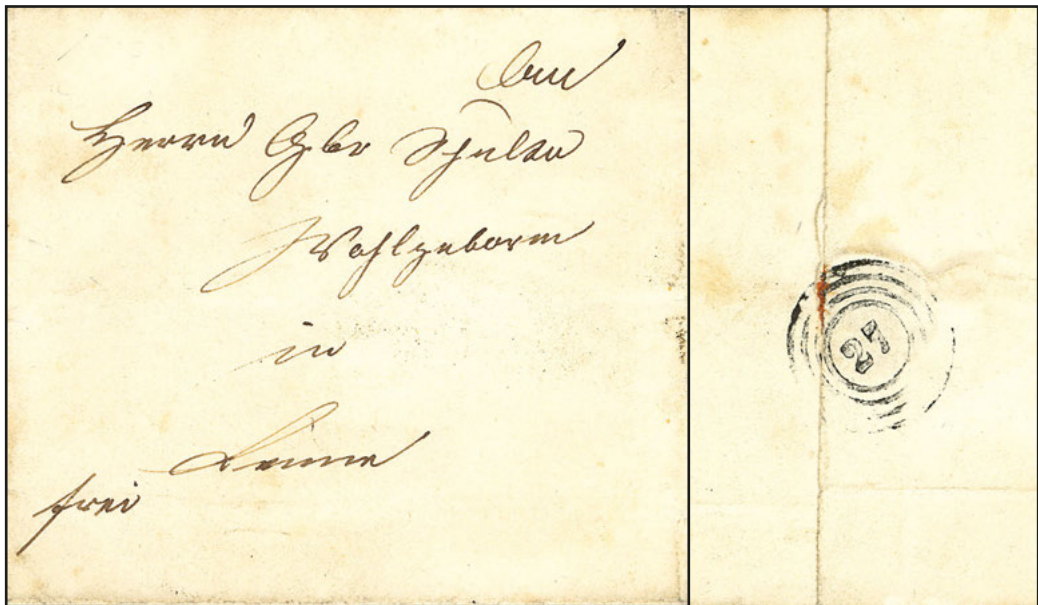 An
Herrn Gbr Schulte
Wohlgeborn
in
frei
27